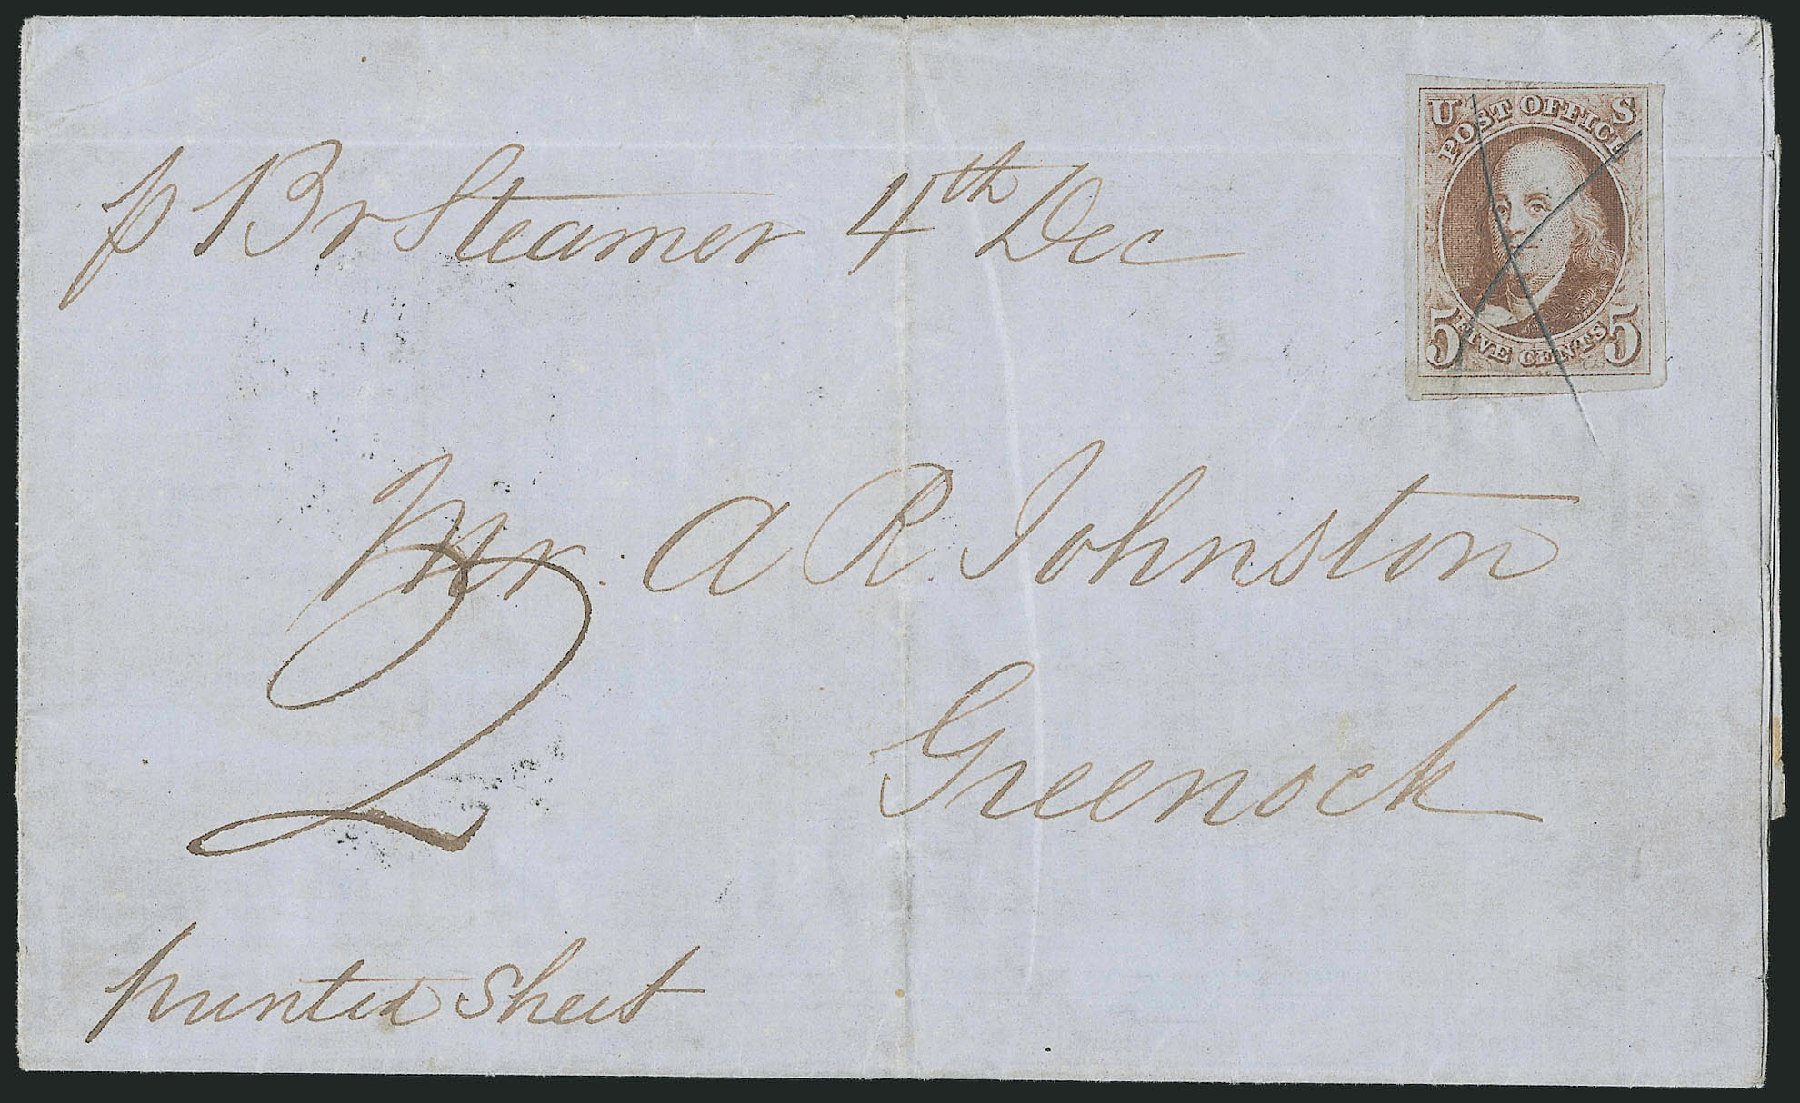 U S
POST OFFICE
5 FIVE CENTS 5
p Br Steamer 4th Dec
Mr. A R Johnston
2
Greenock
printed sheet